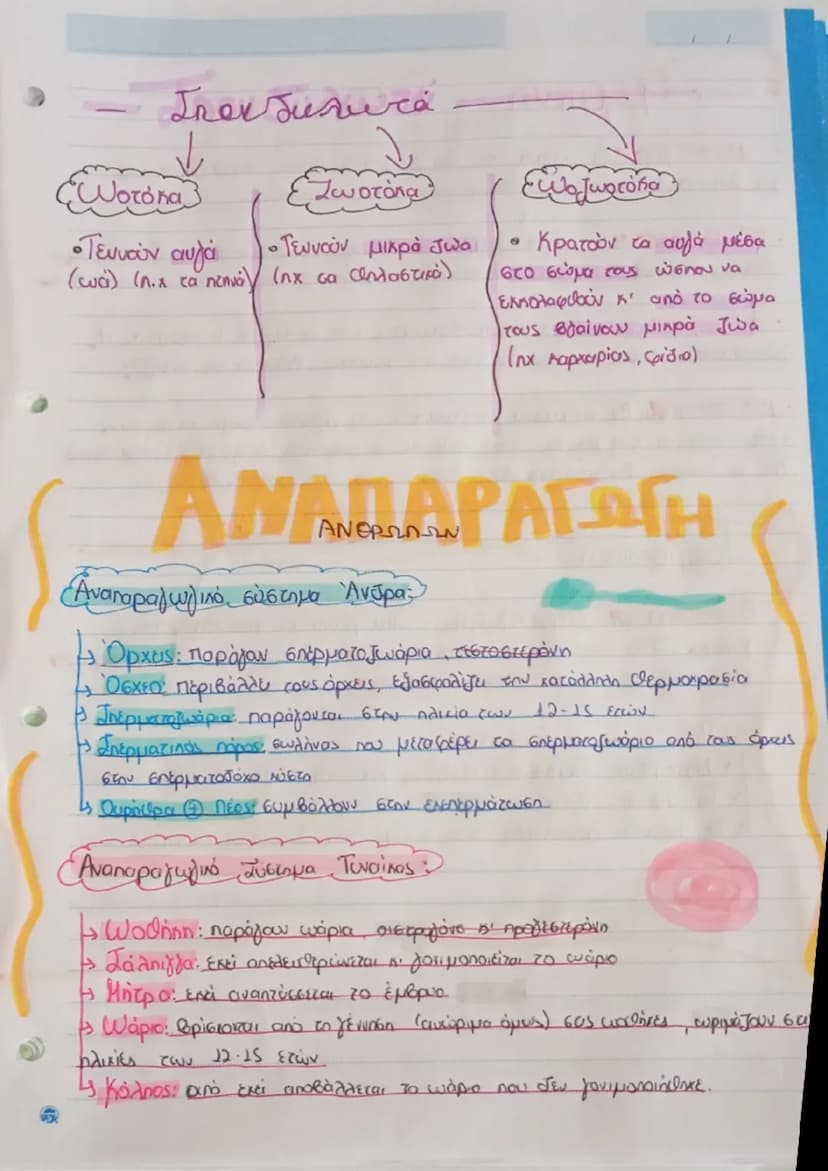 Σπονδυλωτά
Ωοτόκα
Ζωοτόκα
Ωοζωοτόκα
• Γεννούν αυγά
(ωά) (π.χ τα πτηνά)
• Γεννούν μικρά ζώα
(πχ τα θηλαστικά)
• Κρατούν τα αυγά μέσα
στο σώμα τους ώσπου να
εκκολαφθούν κ' από το σώμα
τους βγαίνουν μικρά ζώα
(πχ καρχαρίας, φίδια)
ΑΝΑΠΑΡΑΓΩΓΗ
ΑΝΘΡΩΠΩΝ
Αναπαραγωγικό σύστημα Άνδρα:
Όρχεις: παράγουν σπερματοζωάρια, τεστοστερόνη
Όσχεο: περιβάλλει τους όρχεις, εξασφαλίζει την κατάλληλη θερμοκρασία
Σπερματοζωάρια: παράγονται στην ηλικία των 12-15 ετών
Σπερματικός πόρος: σωλήνας που μεταφέρει τα σπερματοζωάρια από τους όρχεις
στην σπερματοδόχο κύστη
Ουρήθρα + Πέος: συμβάλλουν στην εκσπερμάτωση
Αναπαραγωγικό Σύστημα Γυναίκας:
Ωοθήκη: παράγουν ωάρια, οιστρογόνα κ' προγεστερόνη
Σάλπιγγα: Εκεί απελευθερώνεται κ' γονιμοποιείται το ωάριο
Μήτρα: Εκεί αναπτύσσεται το έμβρυο
Ωάρια: Βρίσκονται από τη γέννηση (ανώριμα όμως) στις ωοθήκες, ωριμάζουν στα
ηλικίες των 12-15 ετών
Κόλπος: από εκεί αποβάλλεται το ωάριο που δεν γονιμοποιήθηκε.